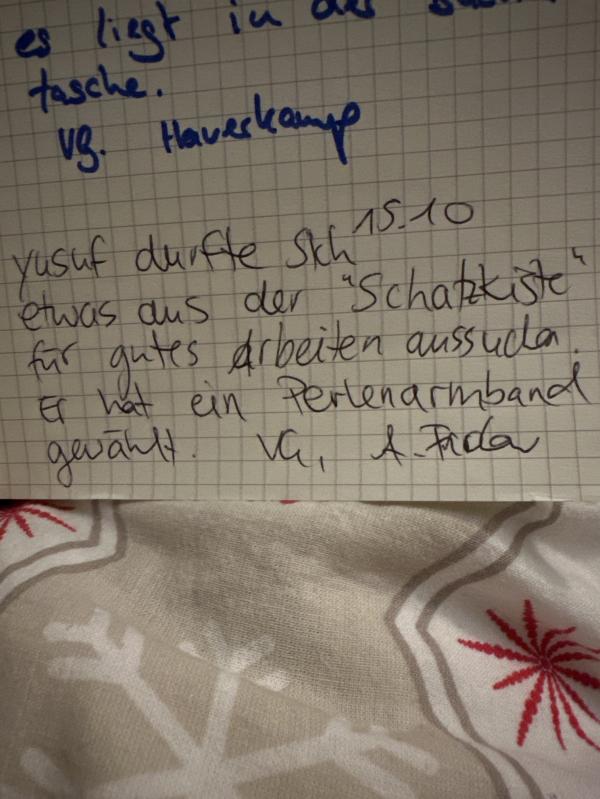 es liegt in der
tasche.
Vg. Haverkamp
15.10
Yusuf durfte sich
etwas aus der "Schatzkiste"
für gutes Arbeiten aussuchen.
Er hat ein Perlenarmband
gewählt. VG, A.